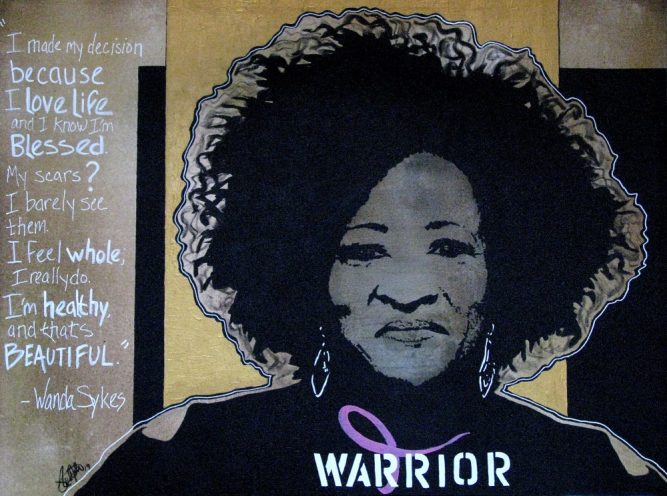 "I made my decision
because
I love life
and I know I'm
Blessed.
My scars?
I barely see
them.
I feel whole,
I really do.
I'm healthy,
and that's
BEAUTIFUL."
- Wanda Sykes
WARRIOR